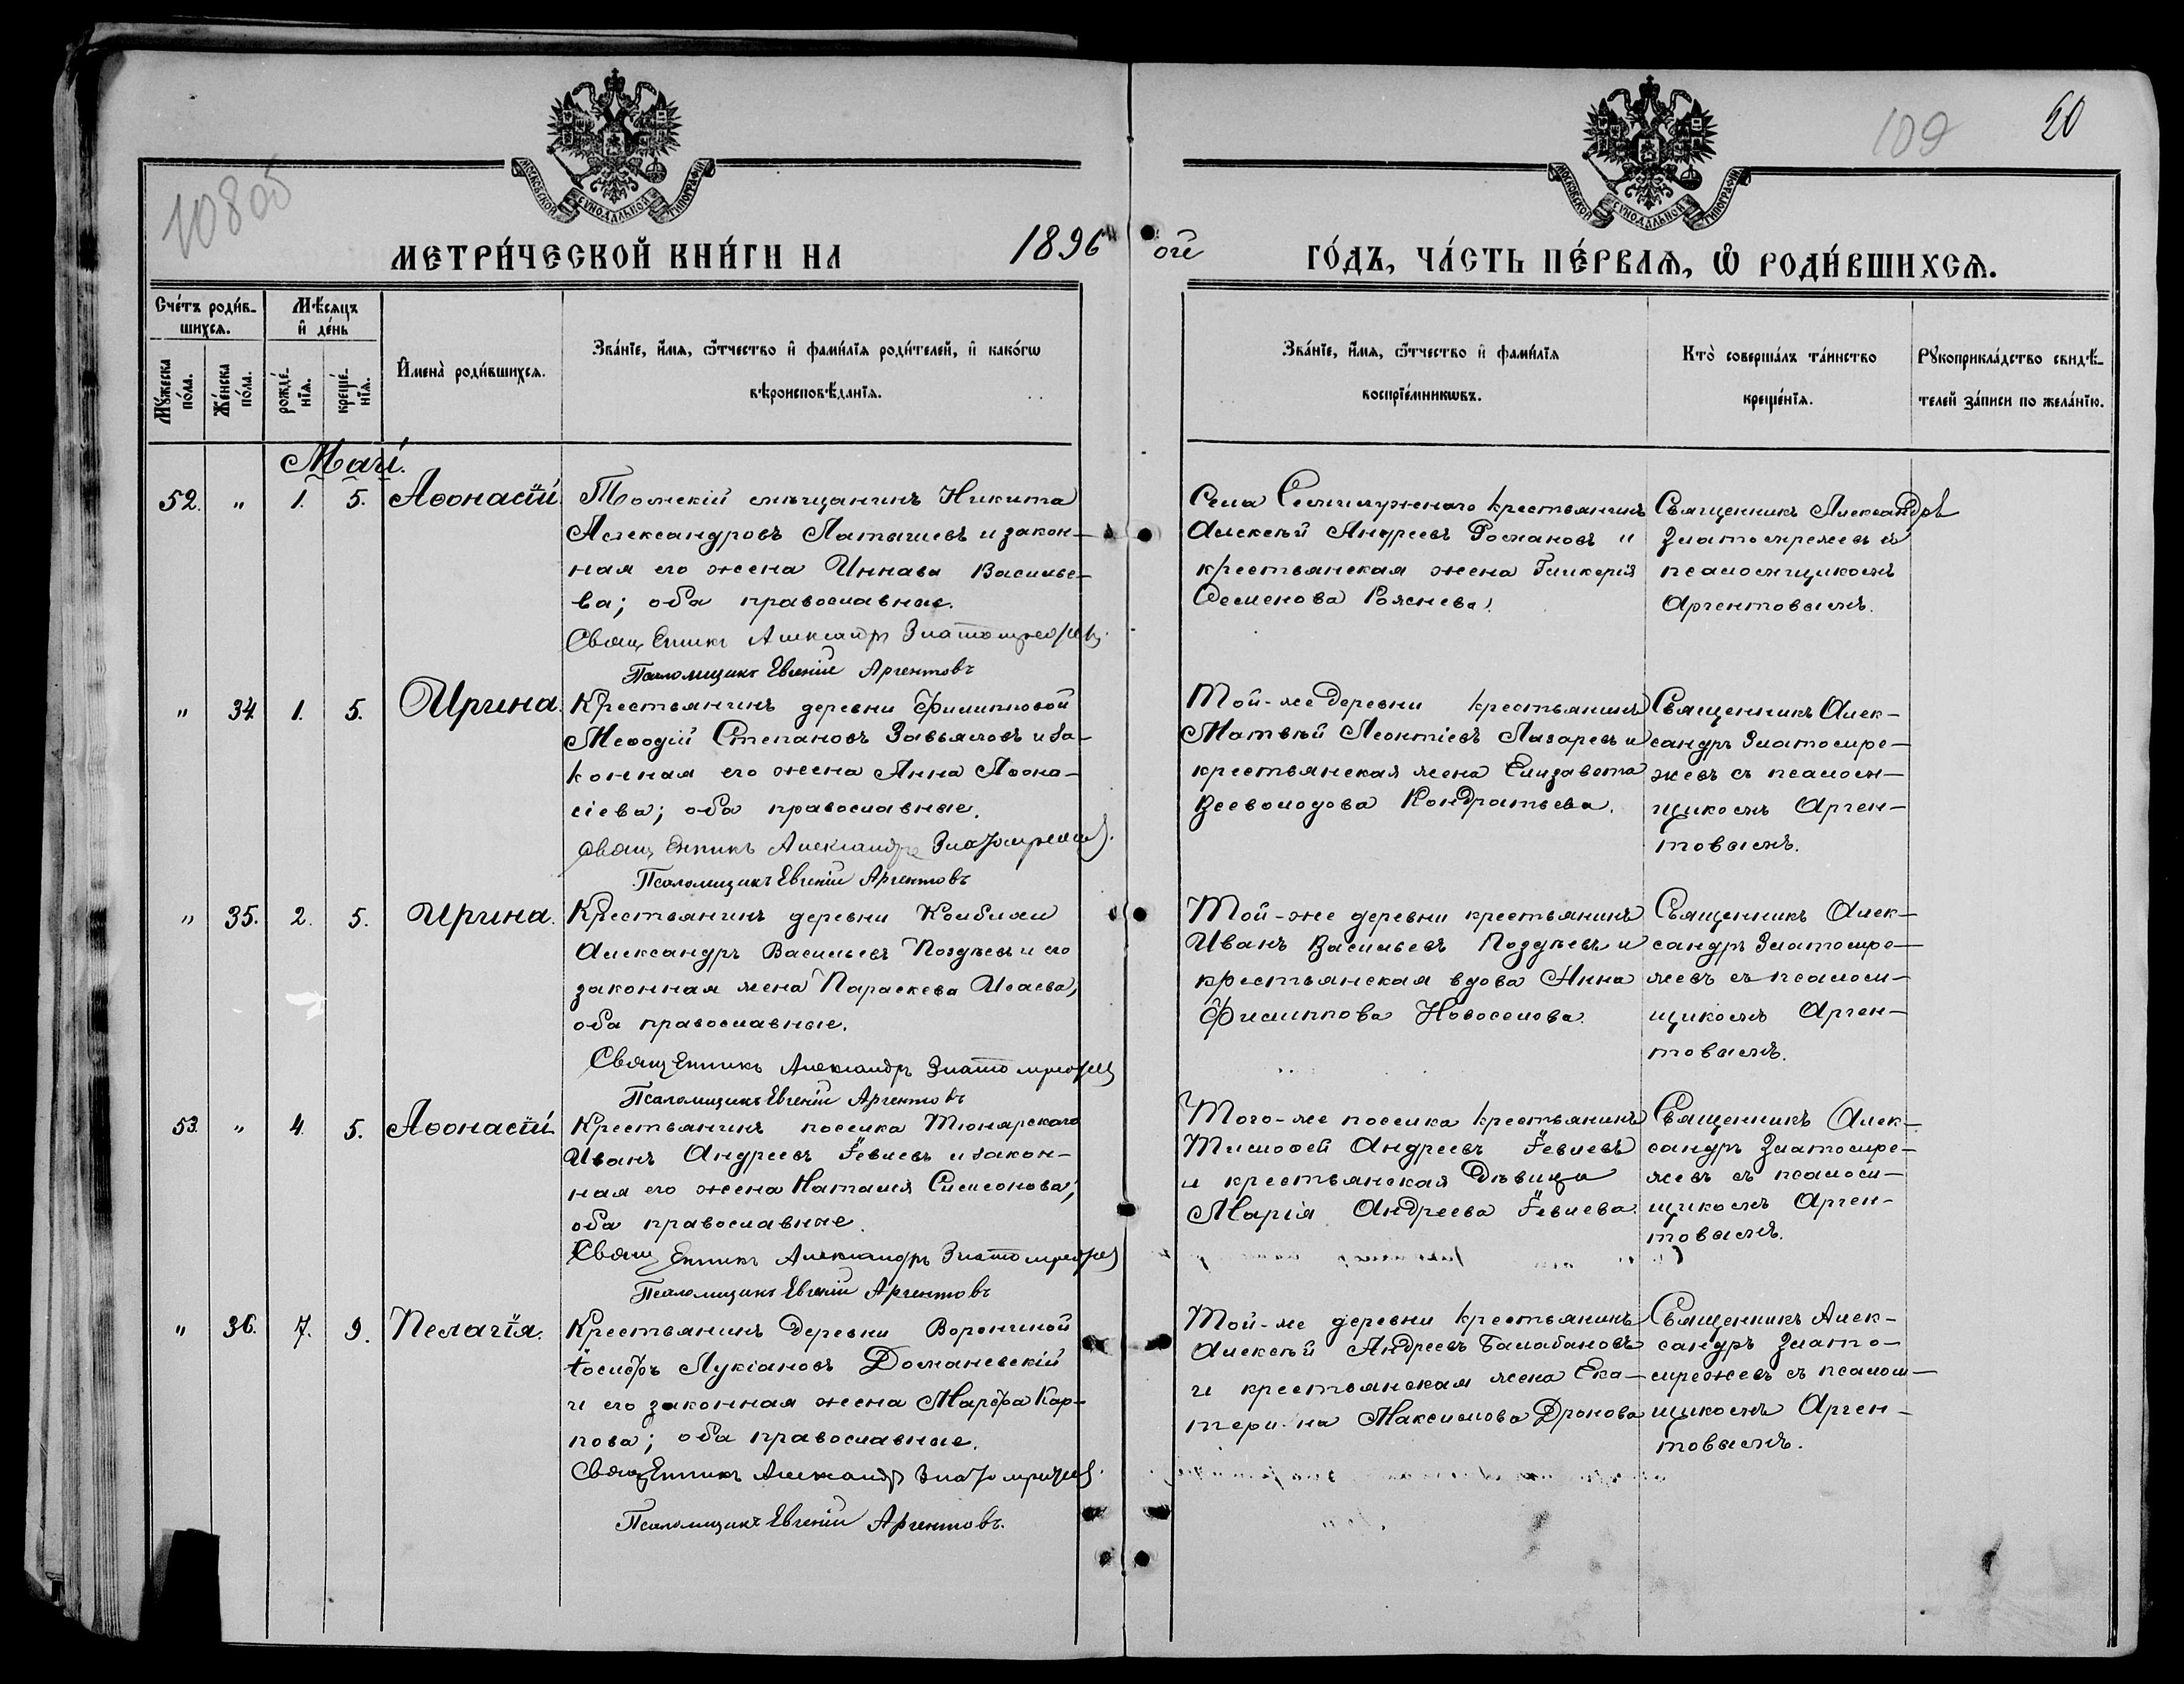 109
50
10805
МОСКОВСКОЙ СѴНОДАЛЬНОЙ ТИПОГРАФІИ
МОСКОВСКОЙ СѴНОДАЛЬНОЙ ТИПОГРАФІИ
МЕТРИ́ЧЕСКОЙ КНИ́ГИ НА 1896 ой ГО́ДЪ, ЧА́СТЬ ПЕ́РВАѦ, Ѡ҆ РОДИ́ВШИХСѦ.
Сче́тъ роди́в-
шихсѧ.
Мѣ́сѧцъ
и҆ де́нь
Мꙋ́жеска по́ла.
Же́нска по́ла.
рожде́-нїѧ.
креще́-нїѧ.
И҆мена̀ роди́вшихсѧ.
Зва́нїе, и҆́мѧ, ѻ҆́тчество и҆ фами́лїѧ роди́телей, и҆ како́гѡ
вѣроисповѣ́данїѧ.
Зва́нїе, и҆́мѧ, ѻ҆́тчество и҆ фами́лїѧ
воспрїе́мникѡвъ.
Кто̀ соверша́лъ та́инство
креще́нїѧ.
Рꙋкоприкла́дство свидѣ́-
телей за́писи по жела́нїю.
Май.
52. " 1. 5. Аѳонасій.
Томскій мѣщанинъ Никита
Александровъ Латышевъ и закон-
ная его жена Иннава Василье-
ва; оба православные.
Священникъ Александръ Златомрежевъ.
Псаломщикъ Евгеній Аргентовъ
Села Семилужнаго крестьянинъ
Алексѣй Андреевъ Романовъ и
крестьянская жена Гликерія
Семенова Роянева.
Священникъ Александръ
Златомрежевъ съ
псаломщикомъ
Аргентовымъ.
" 34. 1. 5. Ирина.
Крестьянинъ деревни Филипповой
Меѳодій Степановъ Завьяловъ и за-
конная его жена Анна Аѳона-
сіева; оба православные.
Священникъ Александръ Златомрежевъ.
Псаломщикъ Евгеній Аргентовъ
Той-же деревни крестьянинъ
Матвѣй Леонтіевъ Лазаревъ и
крестьянская жена Елизавета
Всеволодова Кондратьева.
Священникъ Алек-
сандръ Златомре-
жевъ съ псалом-
щикомъ Арген-
товымъ.
" 35. 2. 5. Ирина.
Крестьянинъ деревни Колбихи
Александръ Васильевъ Поздѣевъ и его
законная жена Параскева Исаева;
оба православные.
Священникъ Александръ Златомрежевъ
Псаломщикъ Евгеній Аргентовъ
Той-же деревни крестьянинъ
Иванъ Васильевъ Поздѣевъ и
крестьянская вдова Анна
Филиппова Новоселова.
Священникъ Алек-
сандръ Златомре-
жевъ съ псалом-
щикомъ Арген-
товымъ.
53. " 4. 5. Аѳонасій
Крестьянинъ поселка Тюнярскаго
Иванъ Андреевъ Ѓевлевъ и закон-
ная его жена Наталія Симеонова;
оба православные.
Священникъ Александръ Златомрежевъ
Псаломщикъ Евгеній Аргентовъ
Того-же поселка крестьянинъ
Тимофей Андреевъ Ѓевлевъ
и крестьянская дѣвица
Марія Андреева Ѓевлева.
Священникъ Алек-
сандръ Златомре-
жевъ съ псалом-
щикомъ Арген-
товымъ.
" 36. 7. 9. Пелагія.
Крестьянинъ деревни Ворониной
Іосифъ Лукіановъ Домановскій
и его законная жена Марфа Кар-
пова; оба православные.
Священникъ Александръ Златомрежевъ.
Псаломщикъ Евгеній Аргентовъ.
Той-же деревни крестьянинъ
Алексѣй Андреевъ Балабановъ
и крестьянская жена Ека-
терина Максимова Дронова
Священникъ Алек-
сандръ Злато-
мрежевъ съ псалом-
щикомъ Арген-
товымъ.